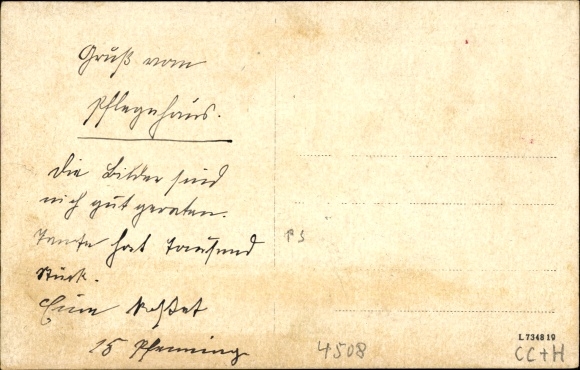 Gruß vom
Pflegehaus.
Die Bilder sind
nich gut geraten.
Tante hat Tausend
Stück.
Eine kostet
15 Pfenning
PS
4508
L 7348 19
CC+H